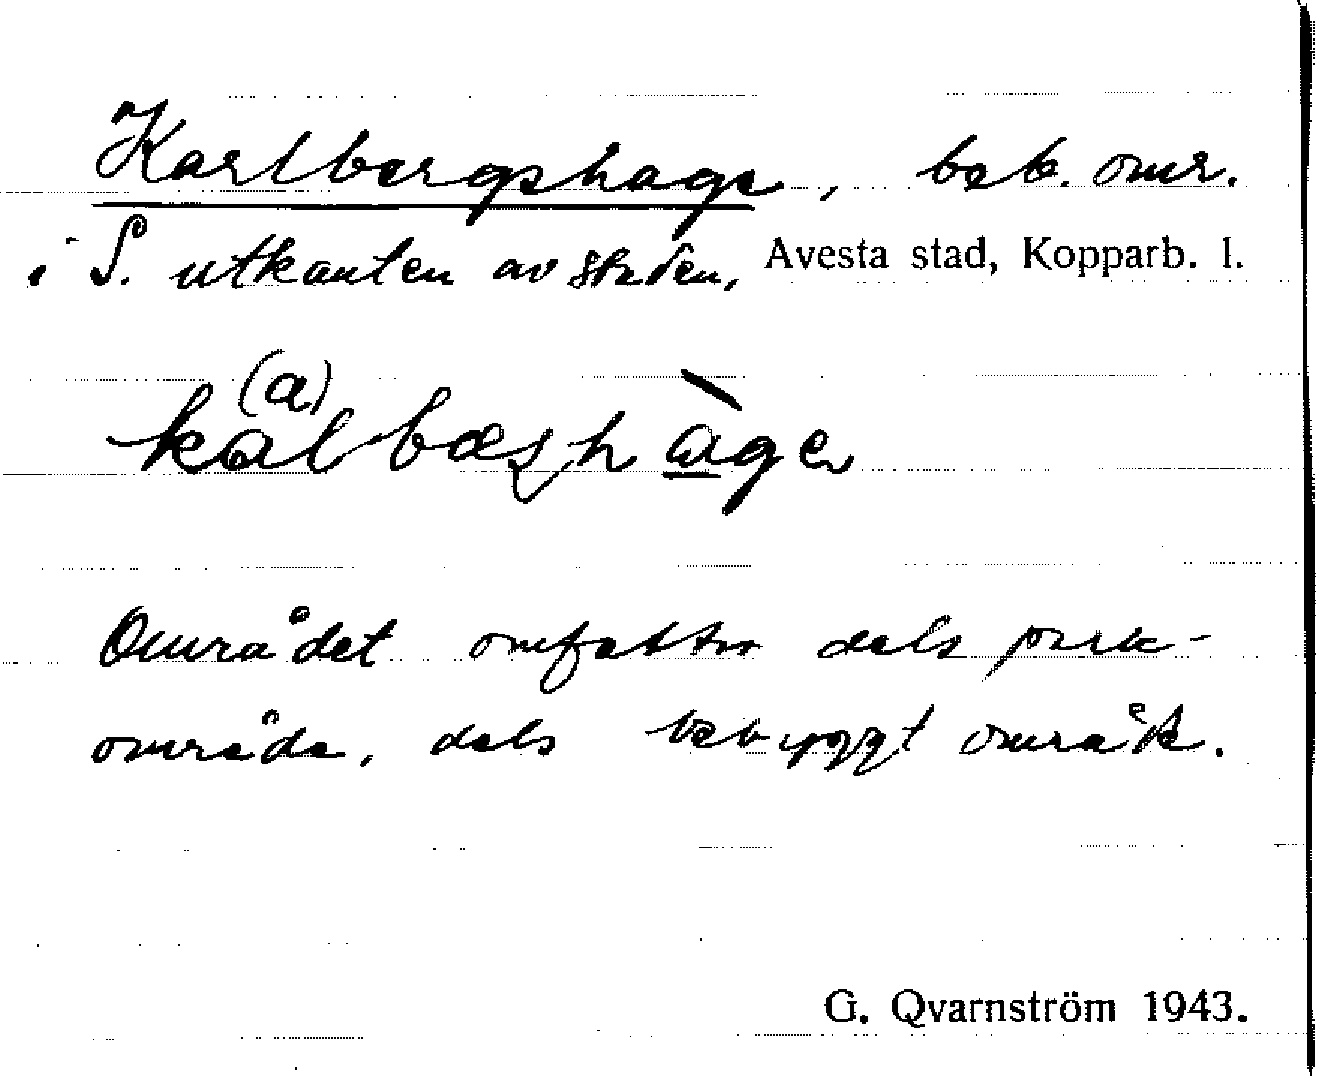 Karlbergshage, beb. omr.
i S. utkanten av staden, Avesta stad, Kopparb. l.
(a)
kalbæsʃhàgen
Området omfattar dels park-
område, dels bebyggt område.
G. Qvarnström 1943.